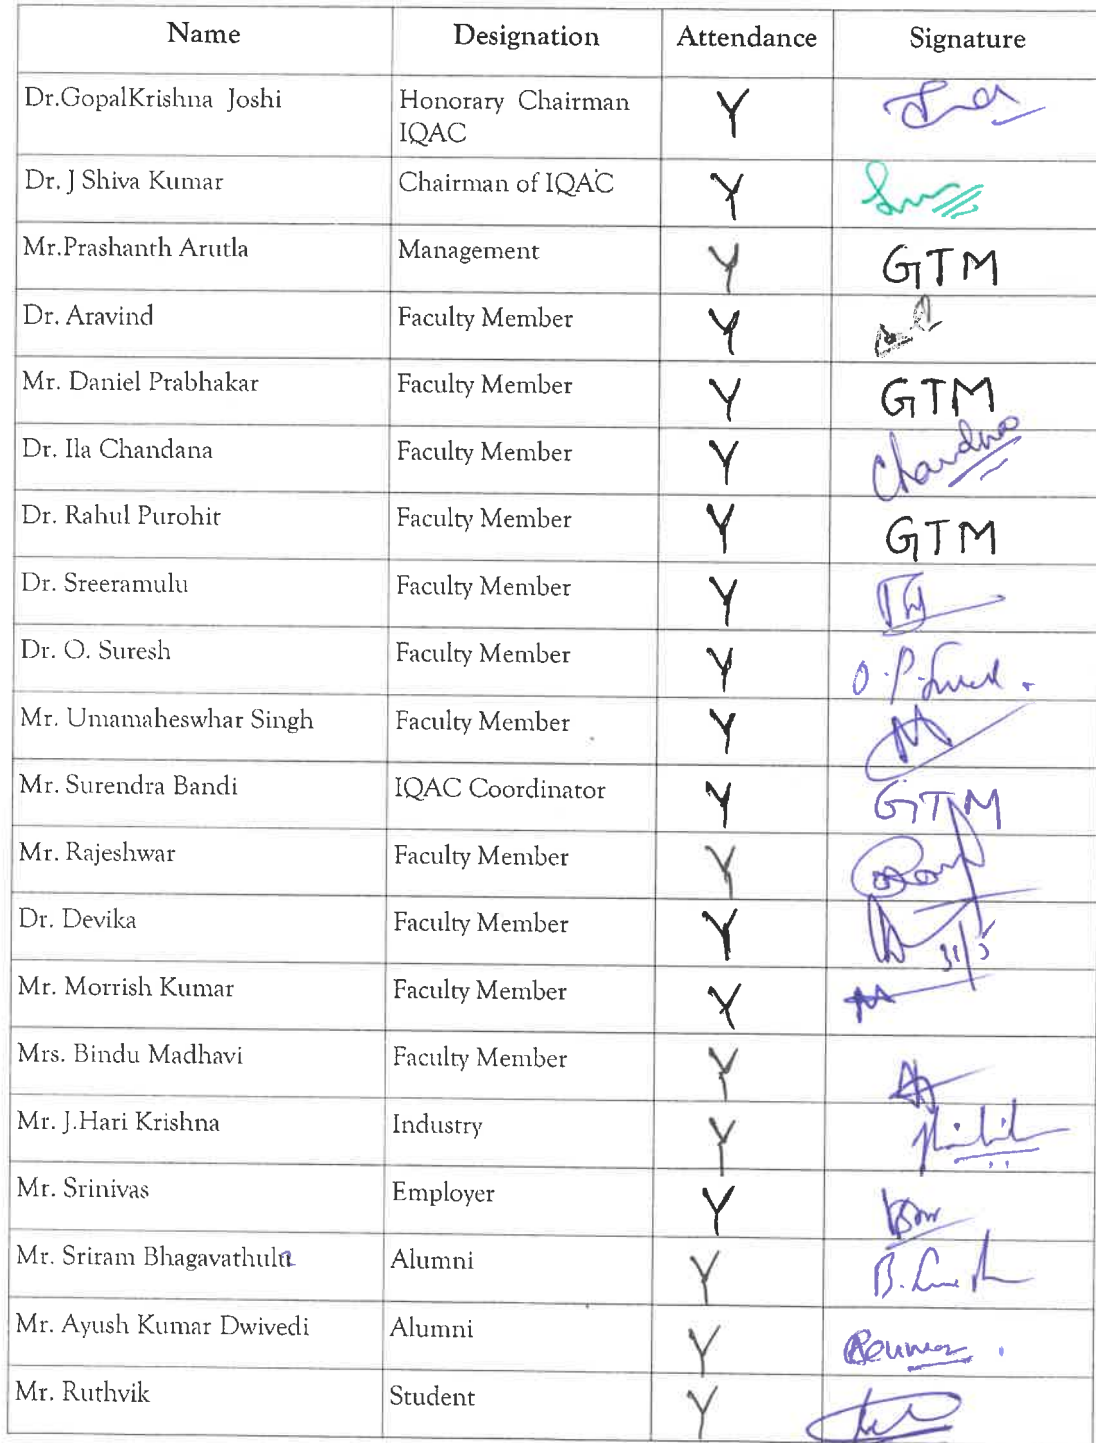 Name Designation Attendance Signature
Dr.GopalKrishna Joshi Honorary Chairman Y
IQAC
Dr. J Shiva Kumar Chairman of IQAC Y
Mr.Prashanth Arutla Management Y GTM
Dr. Aravind Faculty Member Y
Mr. Daniel Prabhakar Faculty Member Y GTM
Dr. Ila Chandana Faculty Member Y Chandana
Dr. Rahul Purohit Faculty Member Y GTM
Dr. Sreeramulu Faculty Member Y
Dr. O. Suresh Faculty Member Y
Mr. Umamaheswhar Singh Faculty Member Y
Mr. Surendra Bandi IQAC Coordinator Y GTM
Mr. Rajeshwar Faculty Member Y
Dr. Devika Faculty Member Y
Mr. Morrish Kumar Faculty Member Y
Mrs. Bindu Madhavi Faculty Member Y
Mr. J.Hari Krishna Industry Y
Mr. Srinivas Employer Y
Mr. Sriram Bhagavathula Alumni Y
Mr. Ayush Kumar Dwivedi Alumni Y
Mr. Ruthvik Student Y